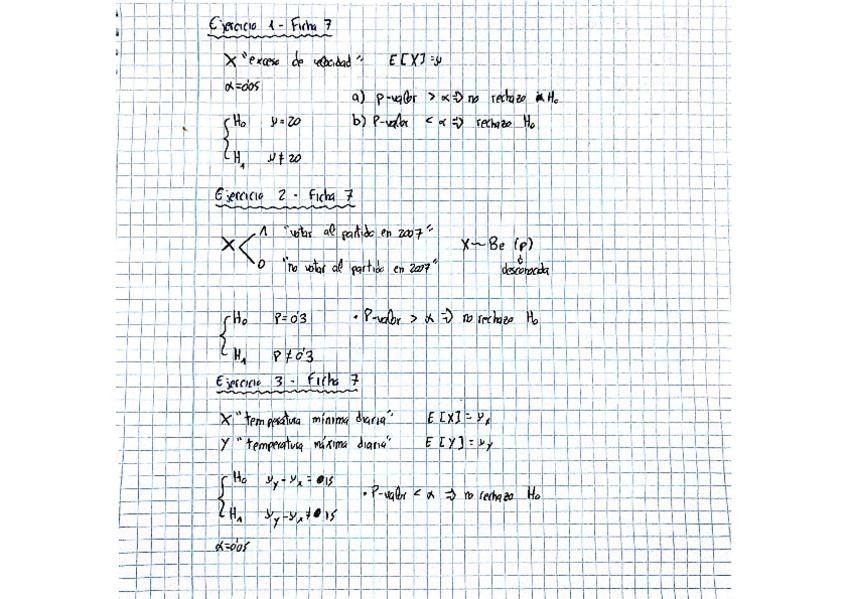 Ejercicio 1 - Ficha 7
X "exceso de velocidad" E[X]=μ
α=0'05
a) p-valor > α => no rechazo H₀
H₀ μ=20 b) P-valor < α => rechazo H₀
H₁ μ≠20
Ejercicio 2 - Ficha 7
1 "votar al partido en 2007"
X X~Be (p)
0 "no votar al partido en 2007" desconocida
H₀ P=0'3 • P-valor > α => no rechazo H₀
H₁ P≠0'3
Ejercicio 3 - Ficha 7
X "temperatura mínima diaria" E[X]=μₓ
Y "temperatura máxima diaria" E[Y]=μy
H₀ μy-μₓ=15
• P-valor < α => no rechazo H₀
H₁ μy-μₓ≠15
α=0'05